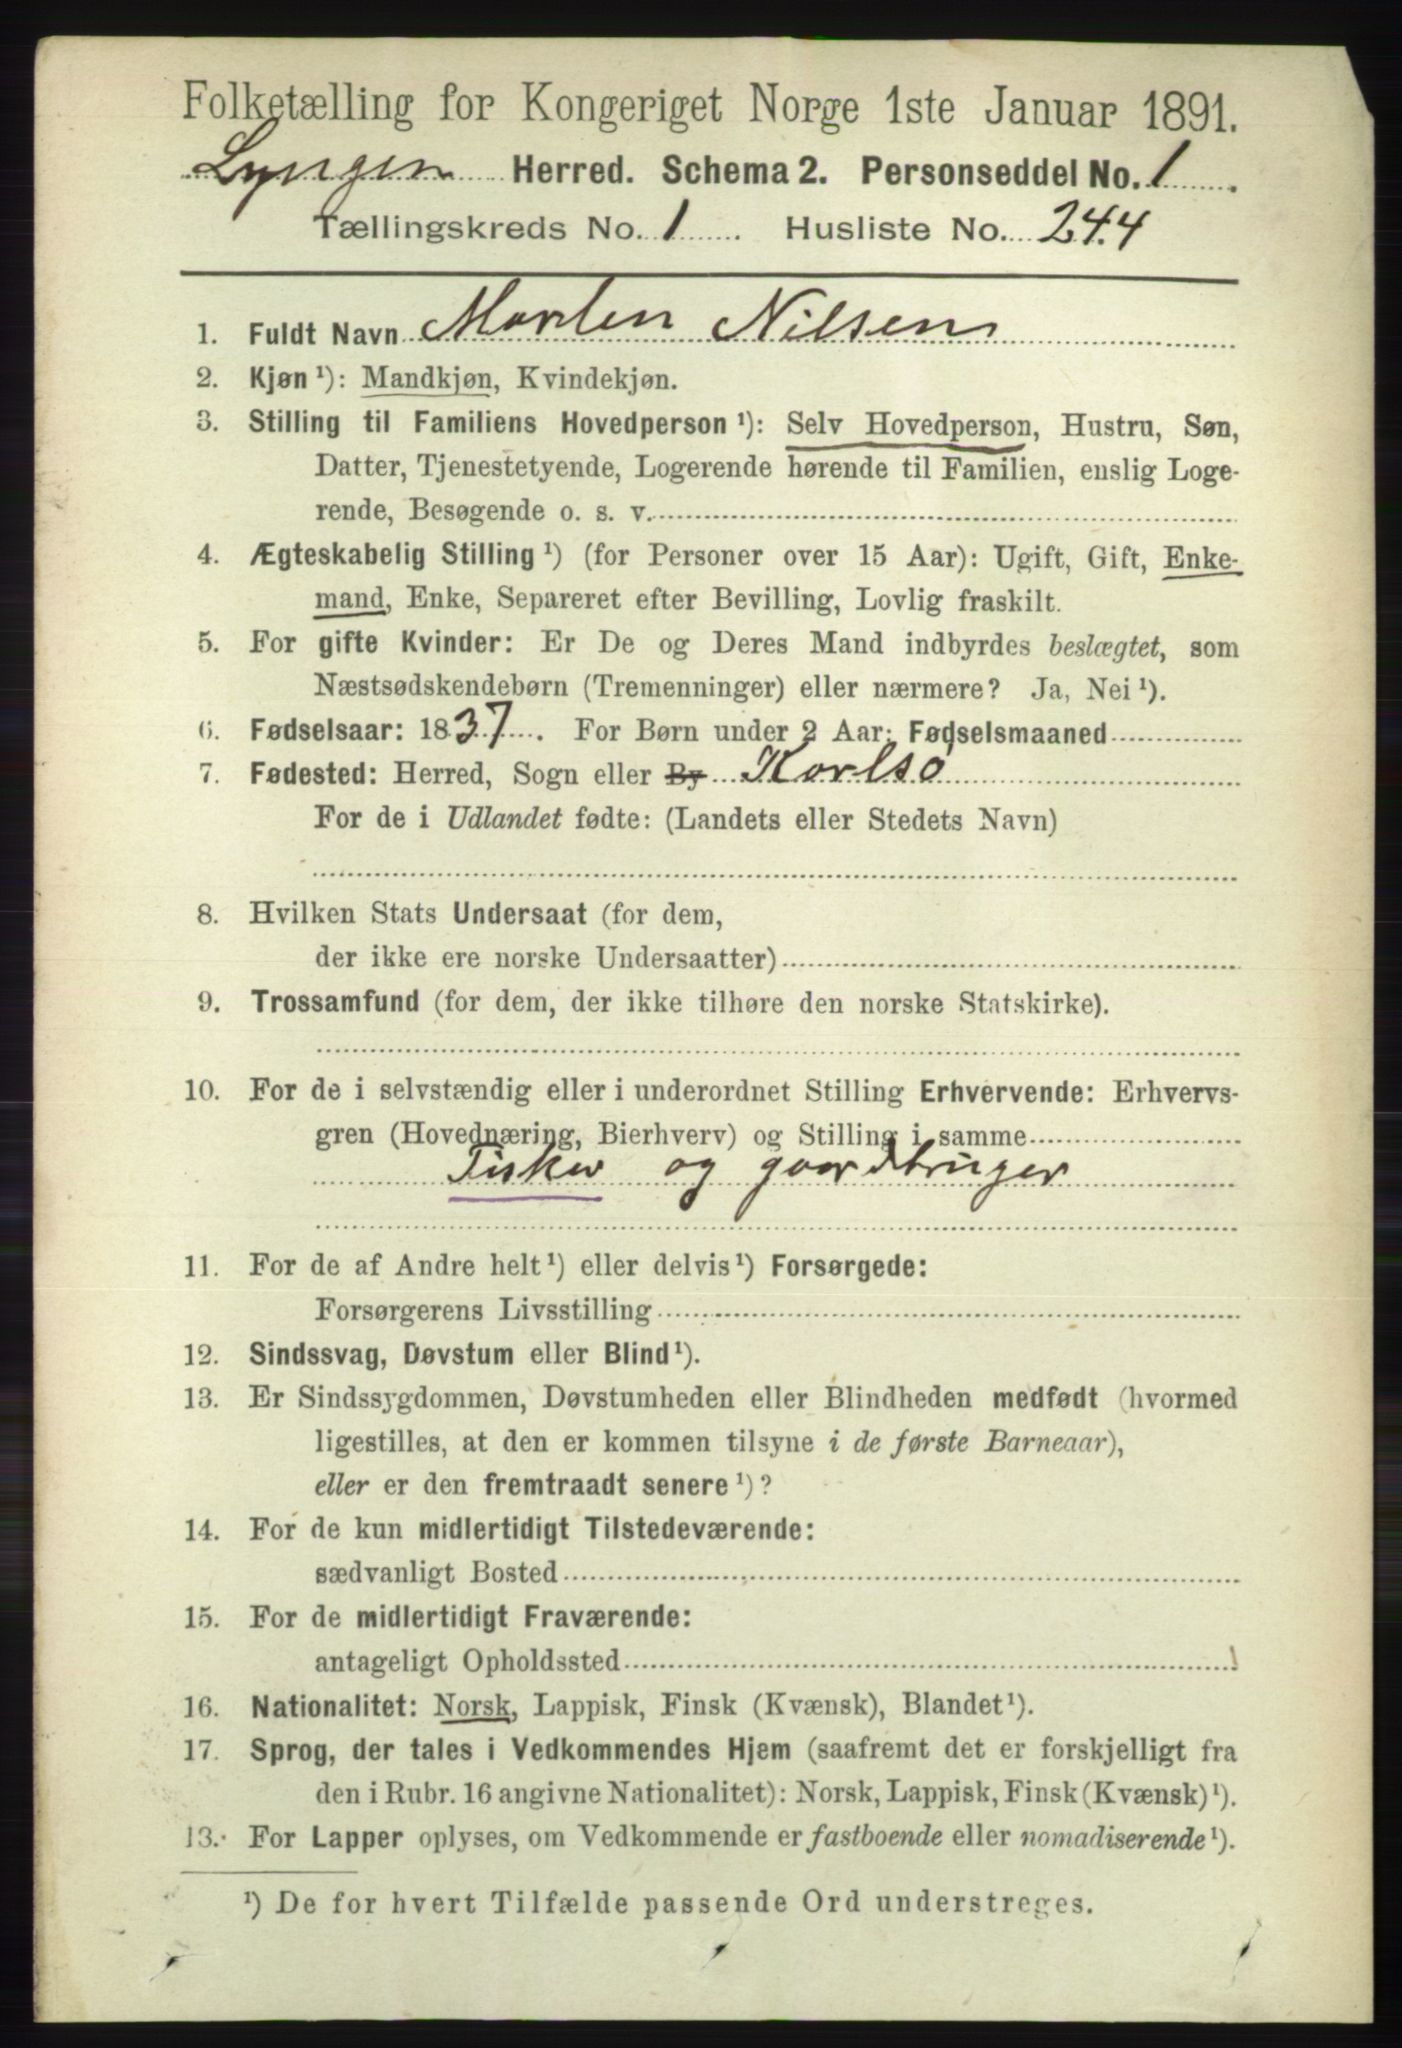 Folketælling for Kongeriget Norge 1ste Januar 1891.
Lyngen Herred. Schema 2. Personseddel No. 1.
Tællingskreds No. 1. Husliste No. 244
1. Fuldt Navn Morten Nilsen
2. Kjøn ¹): Mandkjøn, Kvindekjøn.
3. Stilling til Familiens Hovedperson ¹): Selv Hovedperson, Hustru, Søn,
Datter, Tjenestetyende, Logerende hørende til Familien, enslig Loge-
rende, Besøgende o. s. v.
4. Ægteskabelig Stilling ¹) (for Personer over 15 Aar): Ugift, Gift, Enke-
mand, Enke, Separeret efter Bevilling, Lovlig fraskilt.
5. For gifte Kvinder: Er De og Deres Mand indbyrdes beslægtet, som
Næstsødskendebørn (Tremenninger) eller nærmere? Ja, Nei ¹).
6. Fødselsaar: 1837. For Børn under 2 Aar: Fødselsmaaned
7. Fødested: Herred, Sogn eller By Karlsø
For de i Udlandet fødte: (Landets eller Stedets Navn)
8. Hvilken Stats Undersaat (for dem,
der ikke ere norske Undersaatter)
9. Trossamfund (for dem, der ikke tilhøre den norske Statskirke).
10. For de i selvstændig eller i underordnet Stilling Erhvervende: Erhvervs-
gren (Hovednæring, Bierhverv) og Stilling i samme
Fisker og gaardbruger
11. For de af Andre helt ¹) eller delvis ¹) Forsørgede:
Forsørgerens Livsstilling
12. Sindssvag, Døvstum eller Blind ¹).
13. Er Sindssygdommen, Døvstumheden eller Blindheden medfødt (hvormed
ligestilles, at den er kommen tilsyne i de første Barneaar),
eller er den fremtraadt senere ¹)?
14. For de kun midlertidigt Tilstedeværende:
sædvanligt Bosted
15. For de midlertidigt Fraværende:
antageligt Opholdssted
16. Nationalitet: Norsk, Lappisk, Finsk (Kvænsk), Blandet ¹).
17. Sprog, der tales i Vedkommendes Hjem (saafremt det er forskjelligt fra
den i Rubr. 16 angivne Nationalitet): Norsk, Lappisk, Finsk (Kvænsk) ¹).
13. For Lapper oplyses, om Vedkommende er fastboende eller nomadiserende ¹).
¹) De for hvert Tilfælde passende Ord understreges.